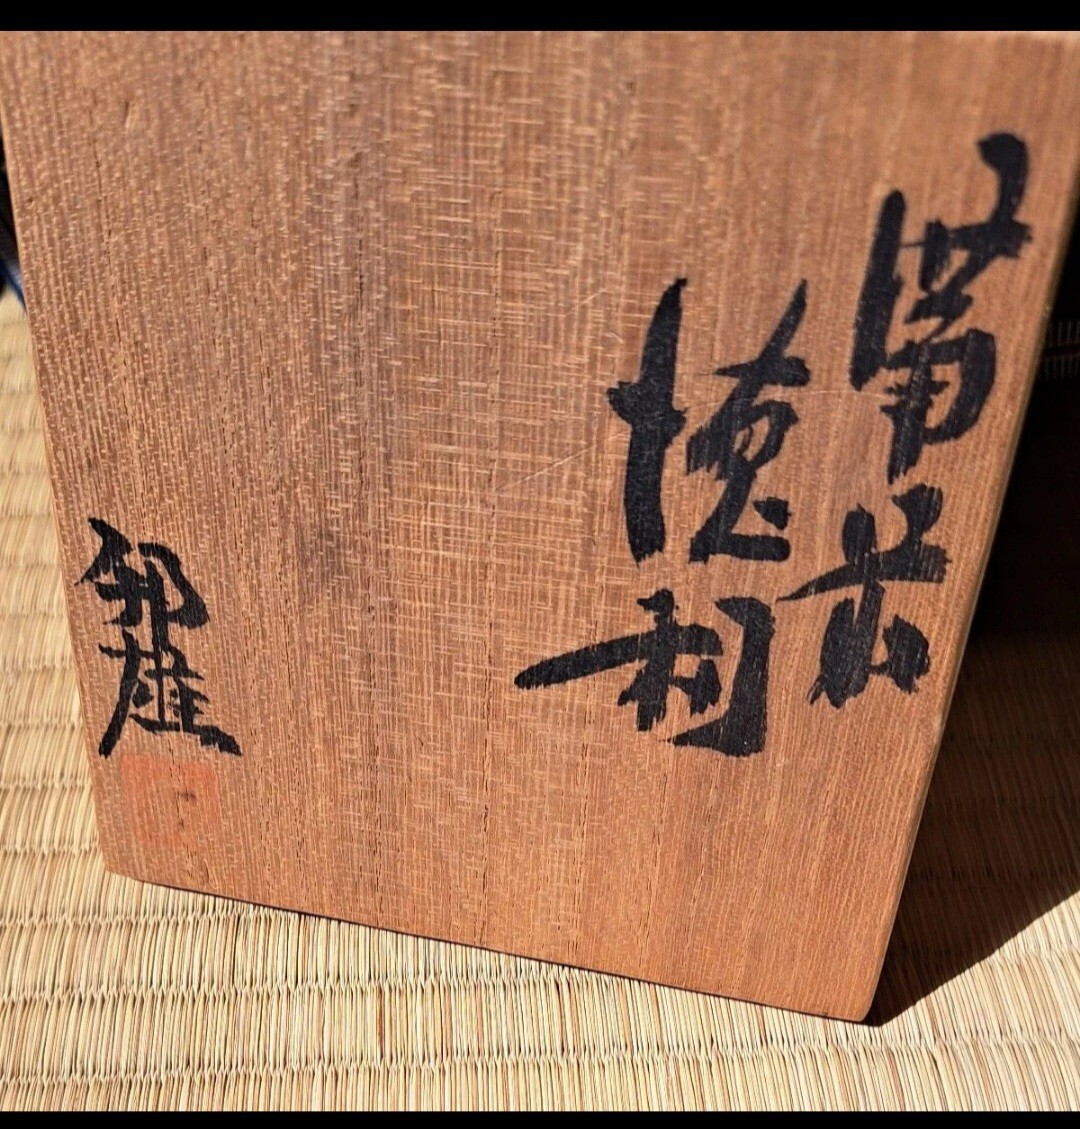 備前
徳利
邦雄